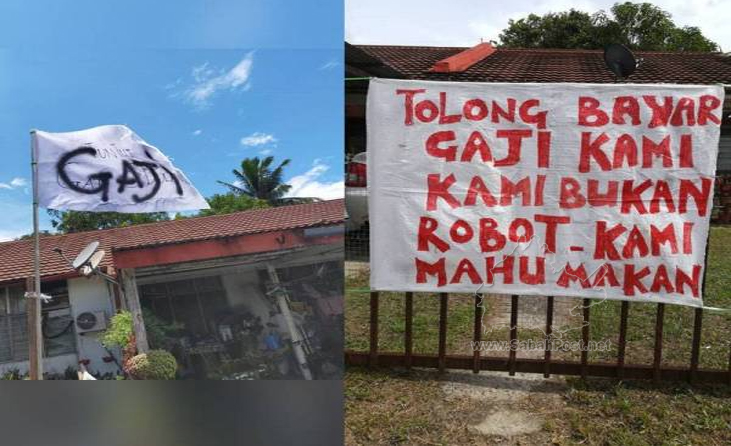 GAJI
TOLONG BAYAR
GAJI KAMI
KAMI BUKAN
ROBOT - KAMI
MAHU MAKAN
www.SabahPost.net